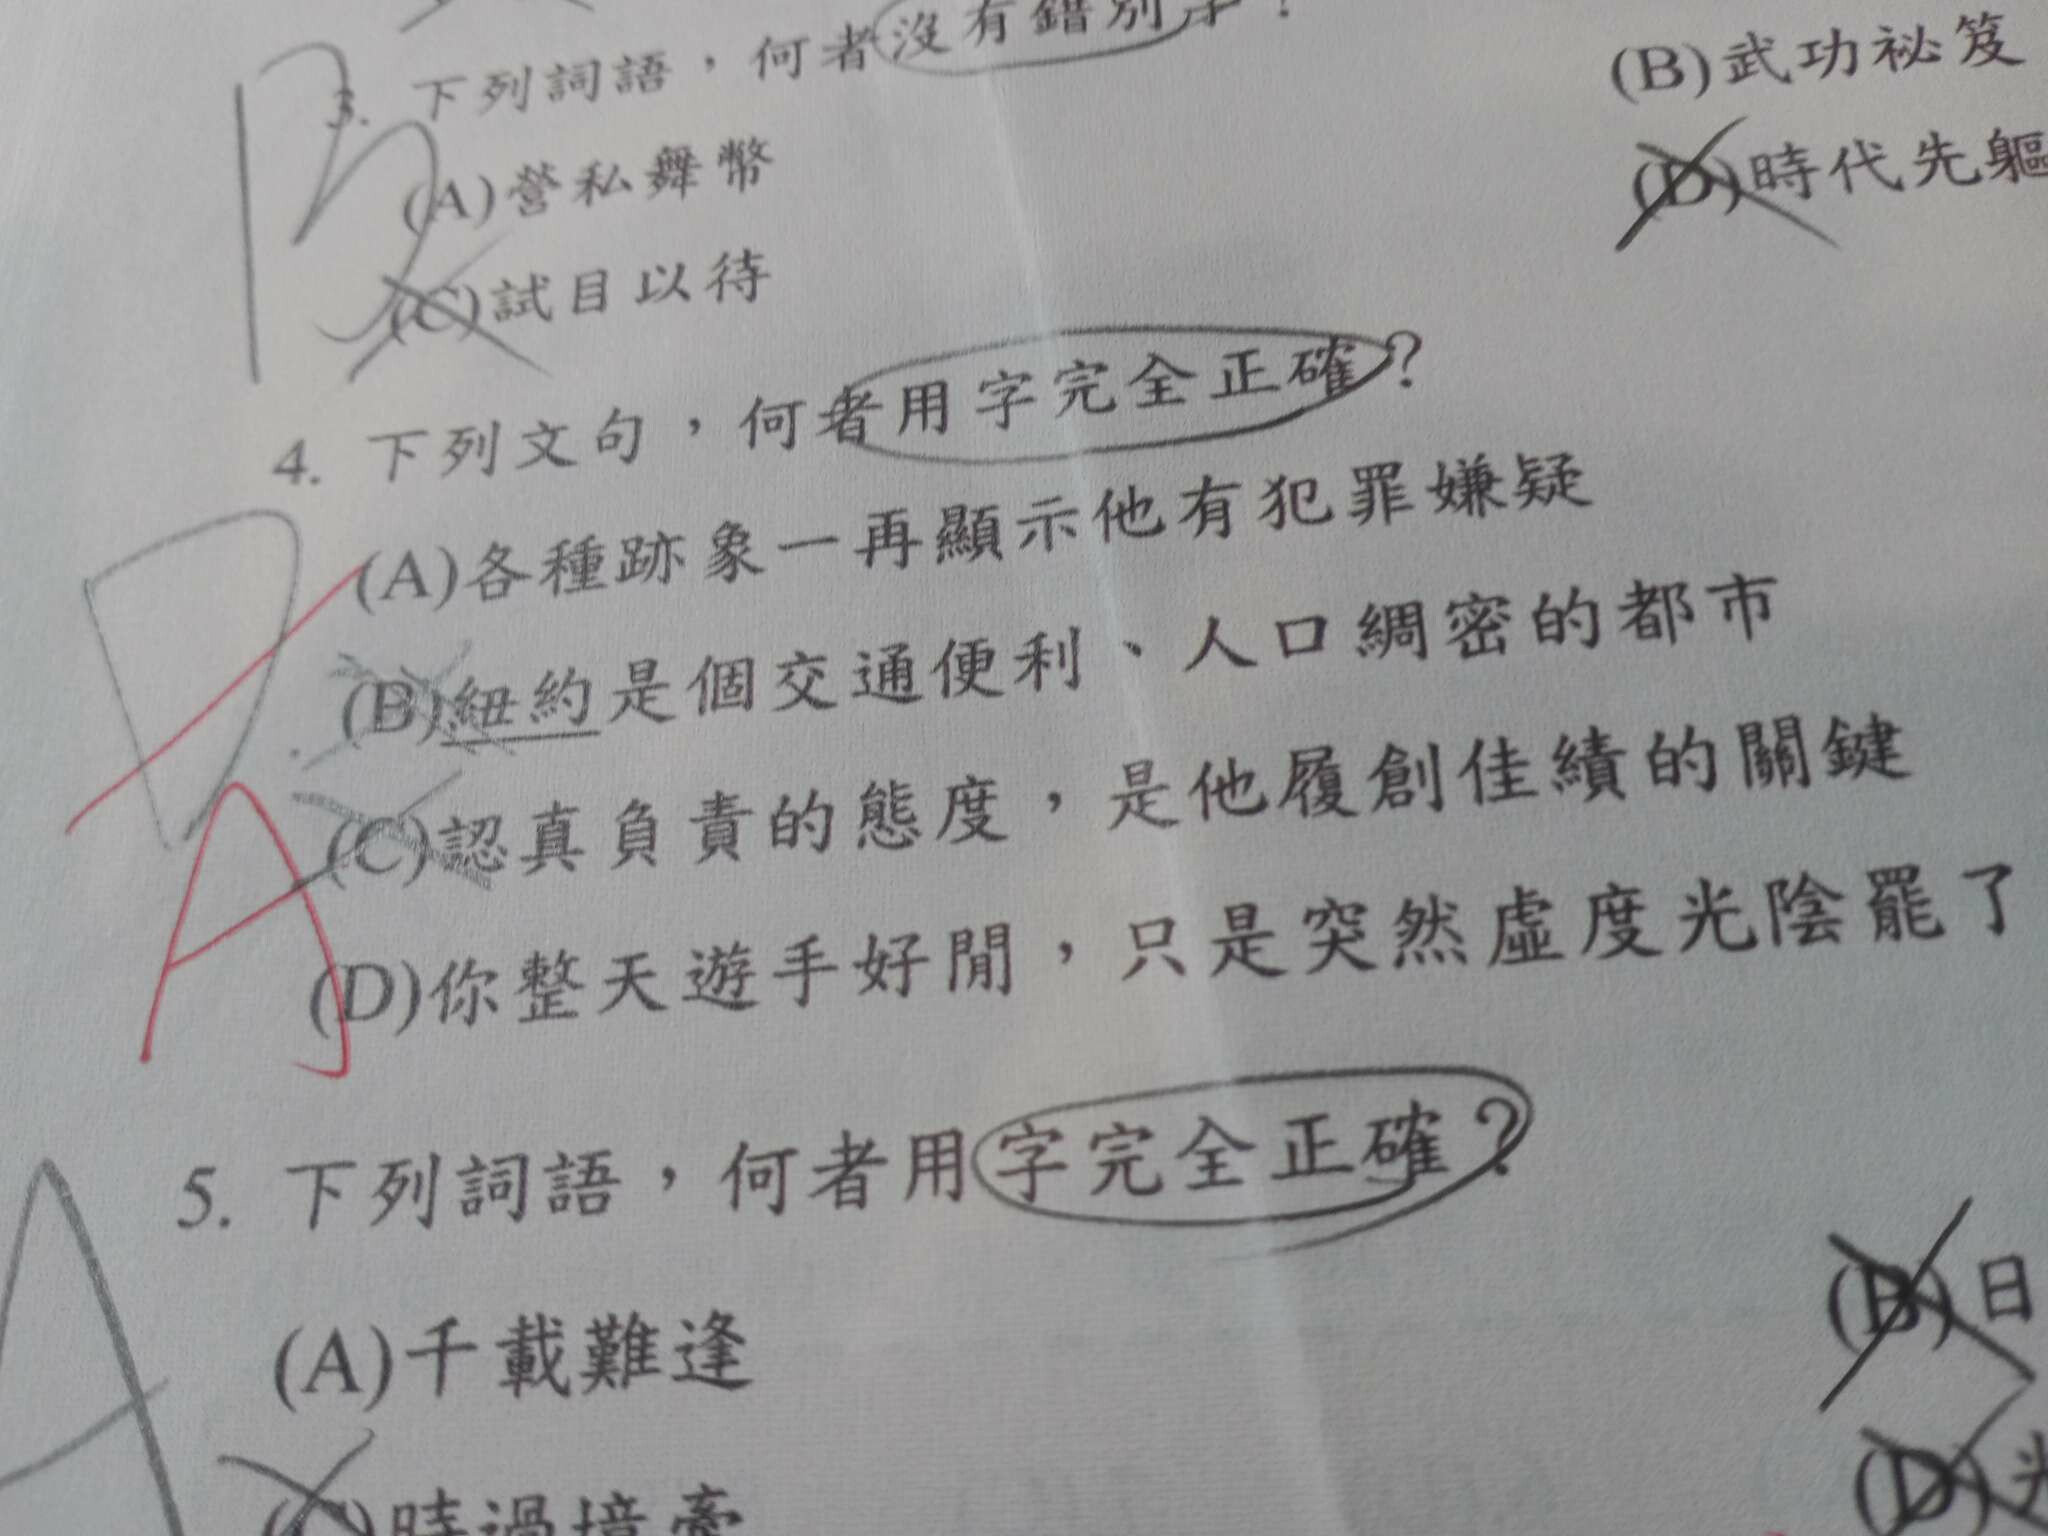 3. 下列詞語，何者沒有錯別字？
(A)營私舞幣 (B)武功祕笈
(C)試目以待 (D)時代先軀
4. 下列文句，何者用字完全正確？
(A)各種跡象一再顯示他有犯罪嫌疑
(B)紐約是個交通便利、人口綢密的都市
(C)認真負責的態度，是他履創佳績的關鍵
(D)你整天遊手好閒，只是突然虛度光陰罷了
A
5. 下列詞語，何者用字完全正確？
(A)千載難逢 (B)日
A
(C)時過境 (D)